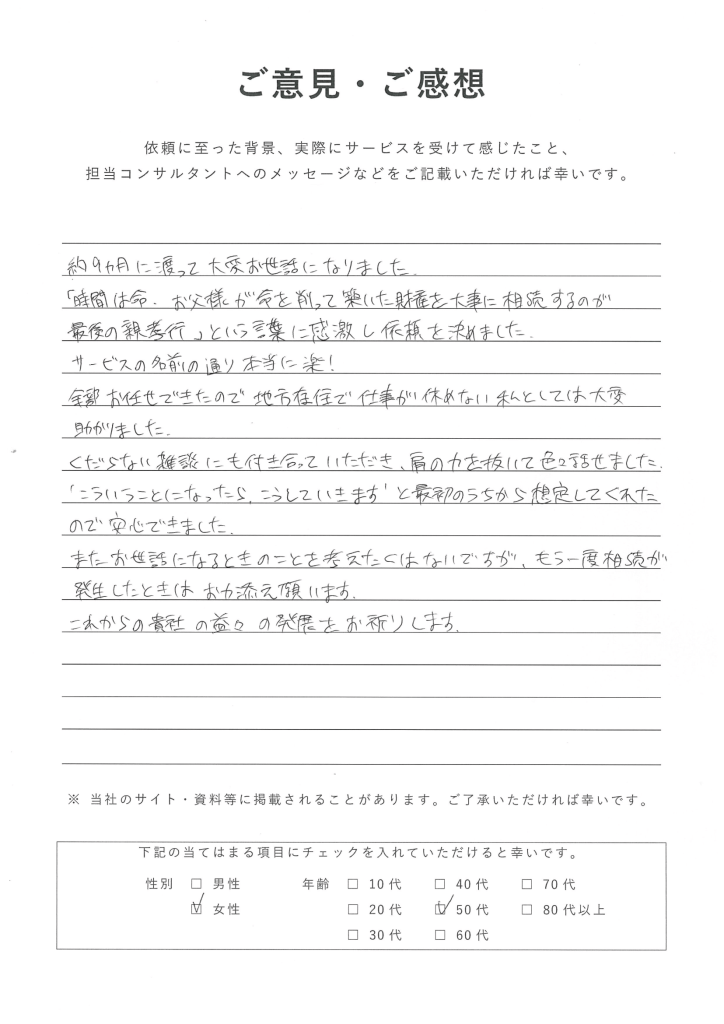 ご意見・ご感想
依頼に至った背景、実際にサービスを受けて感じたこと、
担当コンサルタントへのメッセージなどをご記載いただければ幸いです。
約9ヵ月に渡って大変お世話になりました。
「時間は命．お父様が命を削って築いた財産を大事に相続するのが
最後の親孝行」という言葉に感激し依頼を決めました。
サービスの名前の通り本当に楽！
全部お任せできたので地方在住で仕事が休めない私としては大変
助かりました。
くだらない雑談にも付き合っていただき、肩の力を抜いて色々話せました。
'こういうことになったら，こうしていきます'と最初のうちから想定してくれた
ので安心できました。
またお世話になるときのことを考えたくはないですが、もう一度相続が
発生したときはお力添え願います。
これからの貴社の益々の発展をお祈りします。
※ 当社のサイト・資料等に掲載されることがあります。ご了承いただければ幸いです。
下記の当てはまる項目にチェックを入れていただけると幸いです。
性別 □ 男性 年齢 □ 10代 □ 40代 □ 70代
☑ 女性 □ 20代 ☑ 50代 □ 80代以上
□ 30代 □ 60代